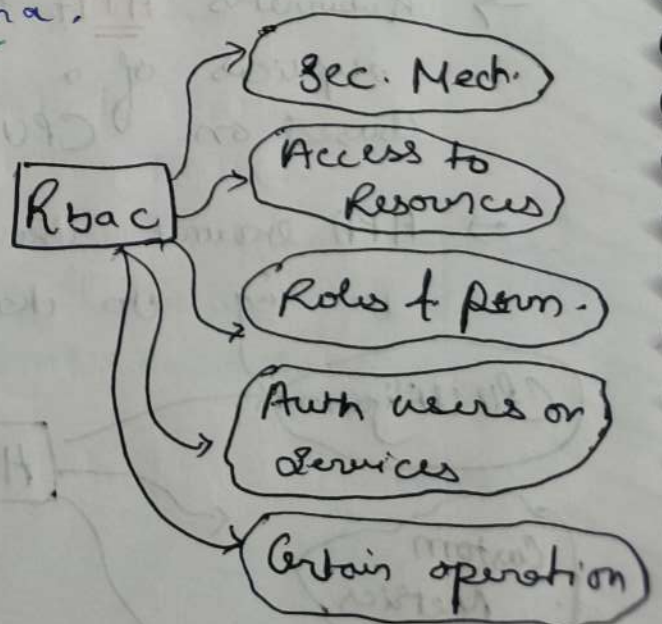 na.
Rbac
Sec. Mech.
Access to
Resources
Roles & perm.
Auth users or
services
Certain operation